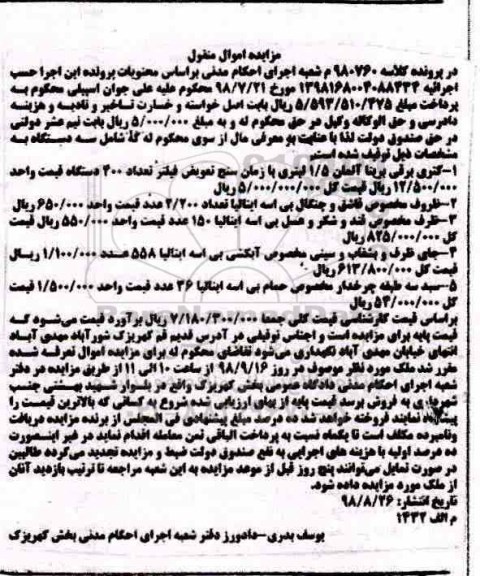 مزایده اموال منقول
در پرونده کلاسه ۹۸۰۷۶۰ م شعبه اجرای احکام مدنی براساس محتویات پرونده این اجرا حسب
اجرائیه ۱۳۹۸۱۶۸۰۰۴۰۸۸۴۳۴ مورخ ۹۸/۷/۲۱ محکوم علیه علی جوان اسپیلی محکوم به
پرداخت مبلغ ۵/۵۹۳/۵۱۰/۴۷۵ ریال بابت اصل خواسته و خسارت تـاخیر و تادیـه و هزینـه
دادرسی و حق الوکاله وکیل در حق محکوم له و به مبلغ ۵/۰۰۰/۰۰۰ ریال بابت نیم عشر دولتی
در حق صندوق دولت لذا با عنایت به معرفی مال از سوی محکوم له که شامل سـه دسـتگاه بـه
مشخصات ذیل توقیف شده است.
۱-کتری برقی بریتا آلمان ۱/۵ لیتری با زمان سنج تعویض فیلتر تعداد ۴۰۰ دستگاه قیمت واحد
۱۲/۵۰۰/۰۰۰ ریال قیمت کل ۵/۰۰۰/۰۰۰/۰۰۰ ریال
۲-ظروف مخصوص قاشق و چنگال بی اسه ایتالیا تعداد ۲/۲۰۰ عدد قیمت واحد ۶۵۰/۰۰۰ ریال
۳-ظرف مخصوص قند و شکر و عسل بی اسه ایتالیا ۱۵۰ عدد قیمت واحد ۵۵۰/۰۰۰ ریال قیمت
کل ۸۲۵/۰۰۰/۰۰۰ ریال
۴-جای ظرف و بشقاب و سینی مخصوص آبکشی بی اسه ایتالیا ۵۵۸ عـدد ۱/۱۰۰/۰۰۰ ریـال
قیمت کل ۶۱۳/۸۰۰/۰۰۰ ریال
۵-سبد سه طبقه چرخدار مخصوص حمام بی اسه ایتالیا ۳۶ عدد قیمت واحد ۱/۵۰۰/۰۰۰ قیمت
کل ۵۴/۰۰۰/۰۰۰ ریال
براساس قیمت کارشناسی قیمت کلی جمعا ۷/۱۸۰/۳۰۰/۰۰۰ ریال برآورد قیمت می‌شـود کـه
قیمت پایه برای مزایده است و اجناس توقیفی در آدرس قدیم قم کهریزک شورآباد مهدی آبـاد
انتهای خیابان مهدی آباد نگهداری می‌شود تقاضای محکوم له برای مزایده اموال تعرفـه شـده
مقرر شد ملک مورد نظر موصوف در روز ۹۸/۹/۱۶ از ساعت ۱۰ الی ۱۱ از طریق مزایده در دفتر
شعبه اجرای احکام مدنی دادگاه عمومی بخش کهریزک واقع در بلـوار شـهید بهشـتی جنـب
شهرداری به فروش برسد قیمت پایه از بهای ارزیابی شده شروع به کسانی که بالاترین قیمـت را
پیشنهاد نمایند فروخته خواهد شد ده درصد مبلغ پیشنهادی فی المجلس از برنده مزایده دریافت
ونامبرده مکلف است تا یکماه نسبت به پرداخت الباقی ثمن معامله اقدام نماید در غیر اینـصورت
ده درصد اولیه با هزینه های اجرایی به نفع صندوق دولت ضبط و مزایده تجدید می‌گردد طالبین
در صورت تمایل می‌توانند پنج روز قبل از موعد مزایده به این شعبه مراجعه تا ترتیب بازدید آنان
از ملک مورد مزایده داده شود.
تاریخ انتشار: ۹۸/۸/۲۶
م الف ۱۴۳۲
یوسف بدری-دادورز دفتر شعبه اجرای احکام مدنی بخش کهریزک